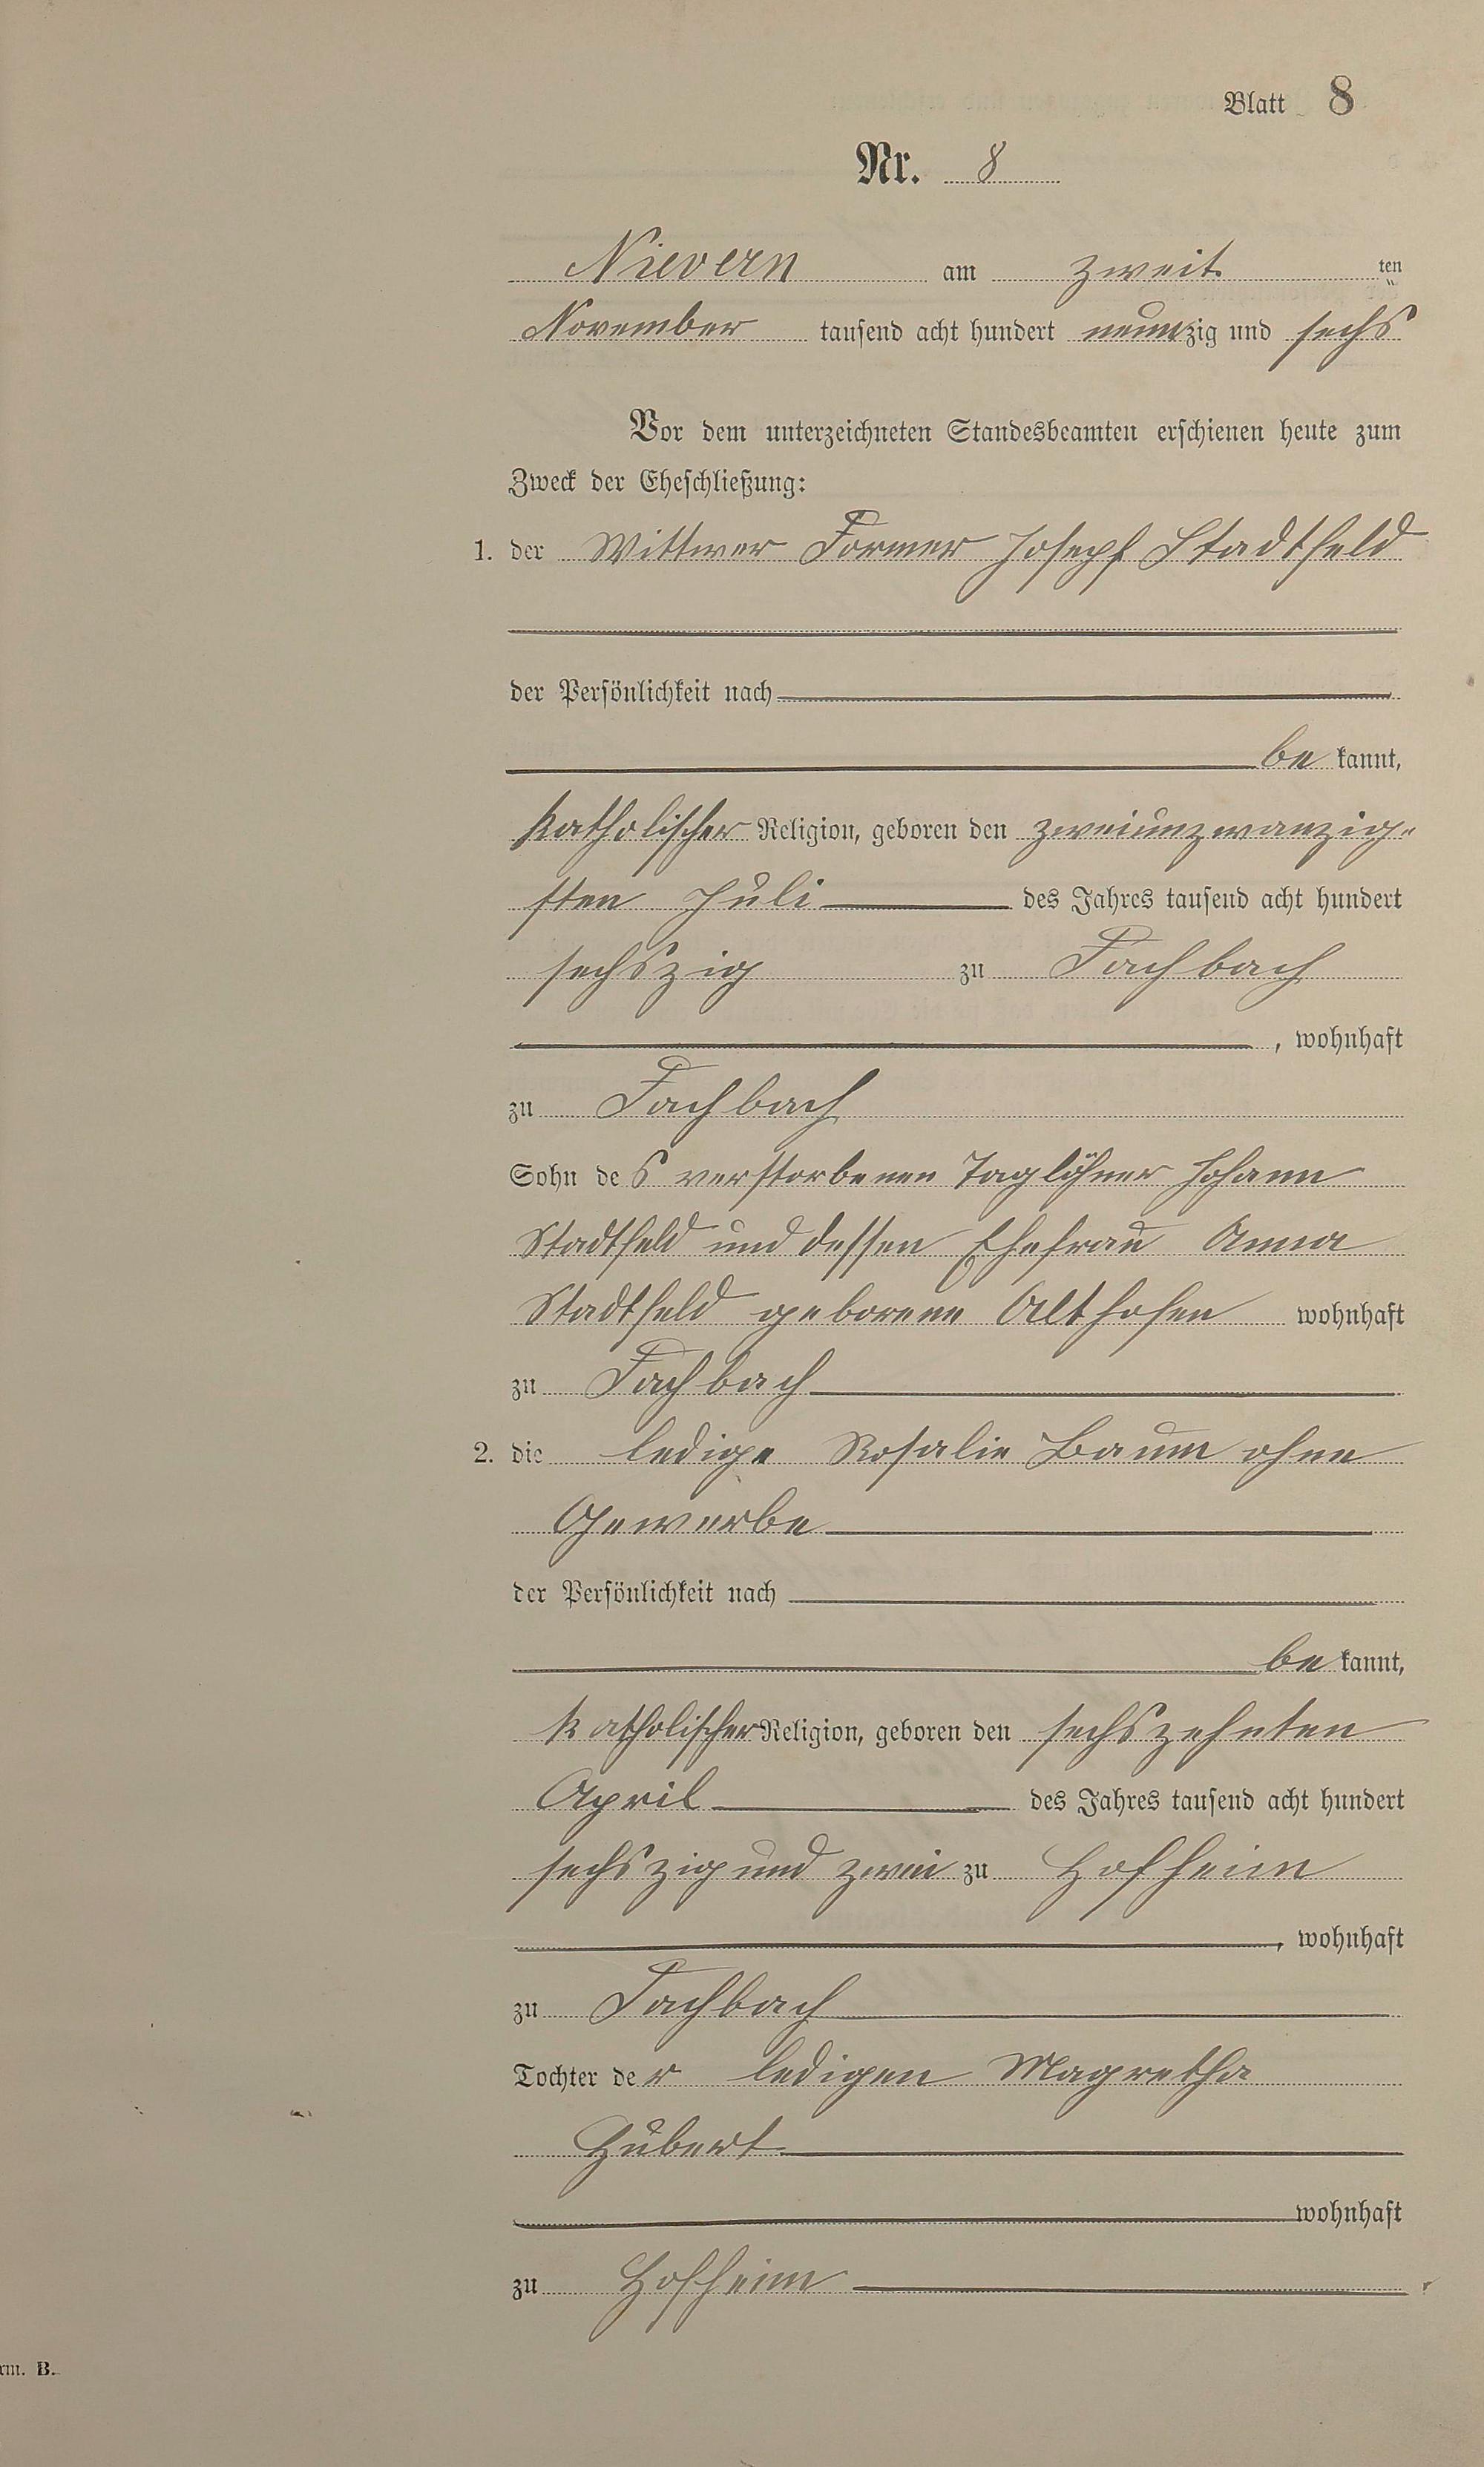 Blatt 8
Nr. 8
Nievern am zweit ten
November tausend acht hundert neunzig und sechs
Vor dem unterzeichneten Standesbeamten erschienen heute zum
Zweck der Eheschließung:
1. der Wittwer Former Joseph Stadtfeld
der Persönlichkeit nach
be kannt,
katholischer Religion, geboren den zweiunzwanzig-
sten Juli des Jahres tausend acht hundert
sechszig zu Fachbach
, wohnhaft
zu Fachbach
Sohn des verstorbenen Taglöhner Johann
Stadtfeld und dessen Ehefrau Anna
Stadtfeld geborene Althofen wohnhaft
zu Fachbach
2. die ledige Rosalie Baum ohne
Gewerbe
der Persönlichkeit nach
be kannt,
katholischer Religion, geboren den sechszehnten
April des Jahres tausend acht hundert
sechszig und zwei zu Hofheim
, wohnhaft
zu Fachbach
Tochter der ledigen Magretha
Hubert
wohnhaft
zu Hofheim
rm. B.